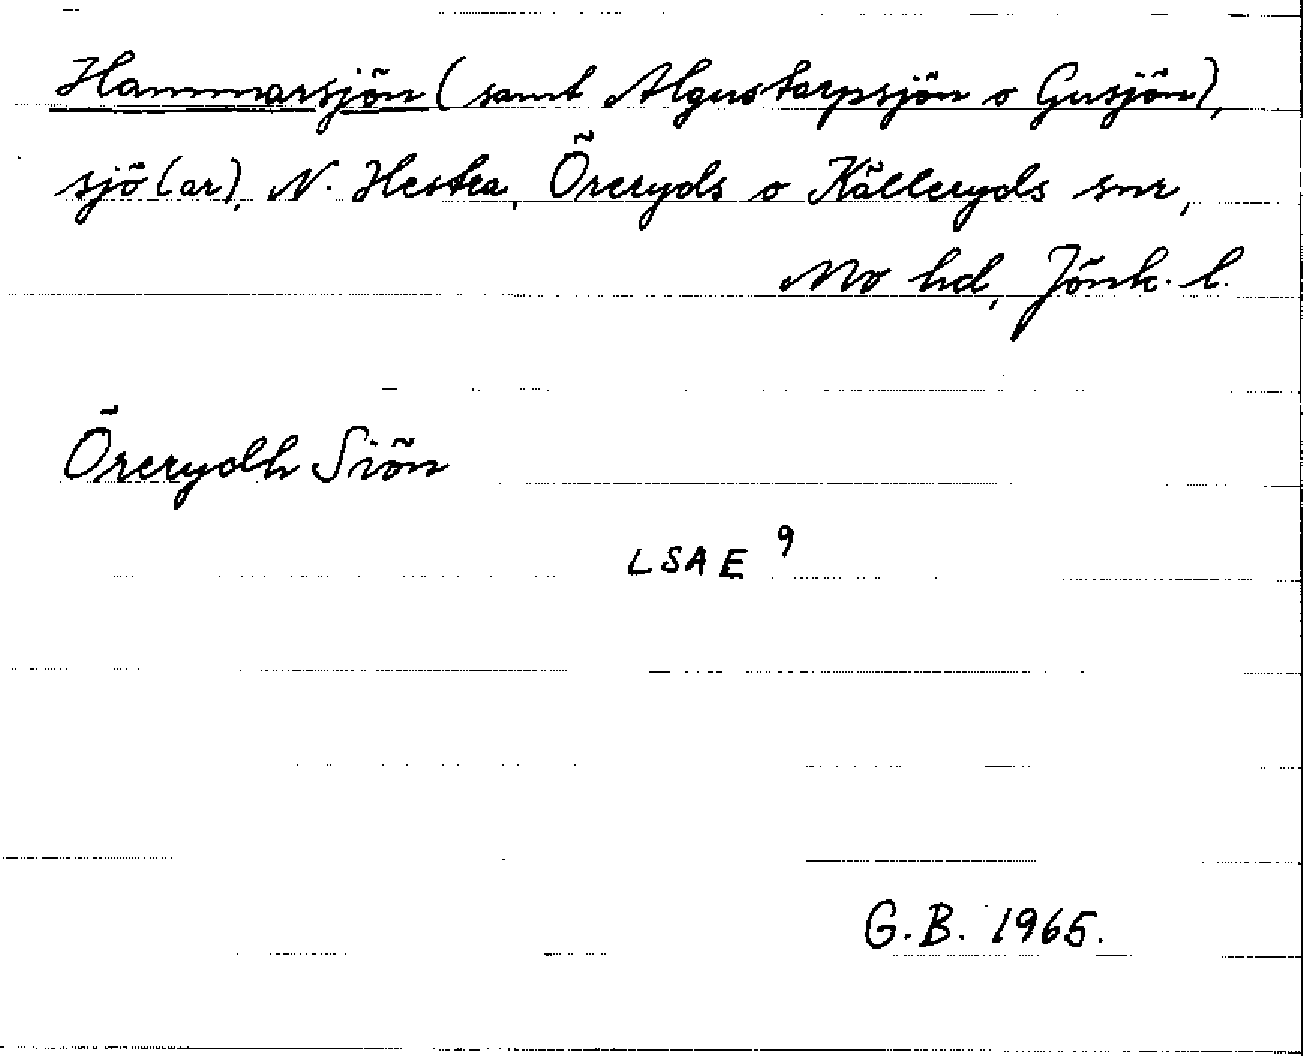 Hammarsjön (samt Algustarpsjön o Gusjön),
sjö(ar), N. Hestra, Öreryds o Källeryds snr,
Mo hd, Jönk. l.
Örerydh Siön
LSA E 9
G.B. 1965.